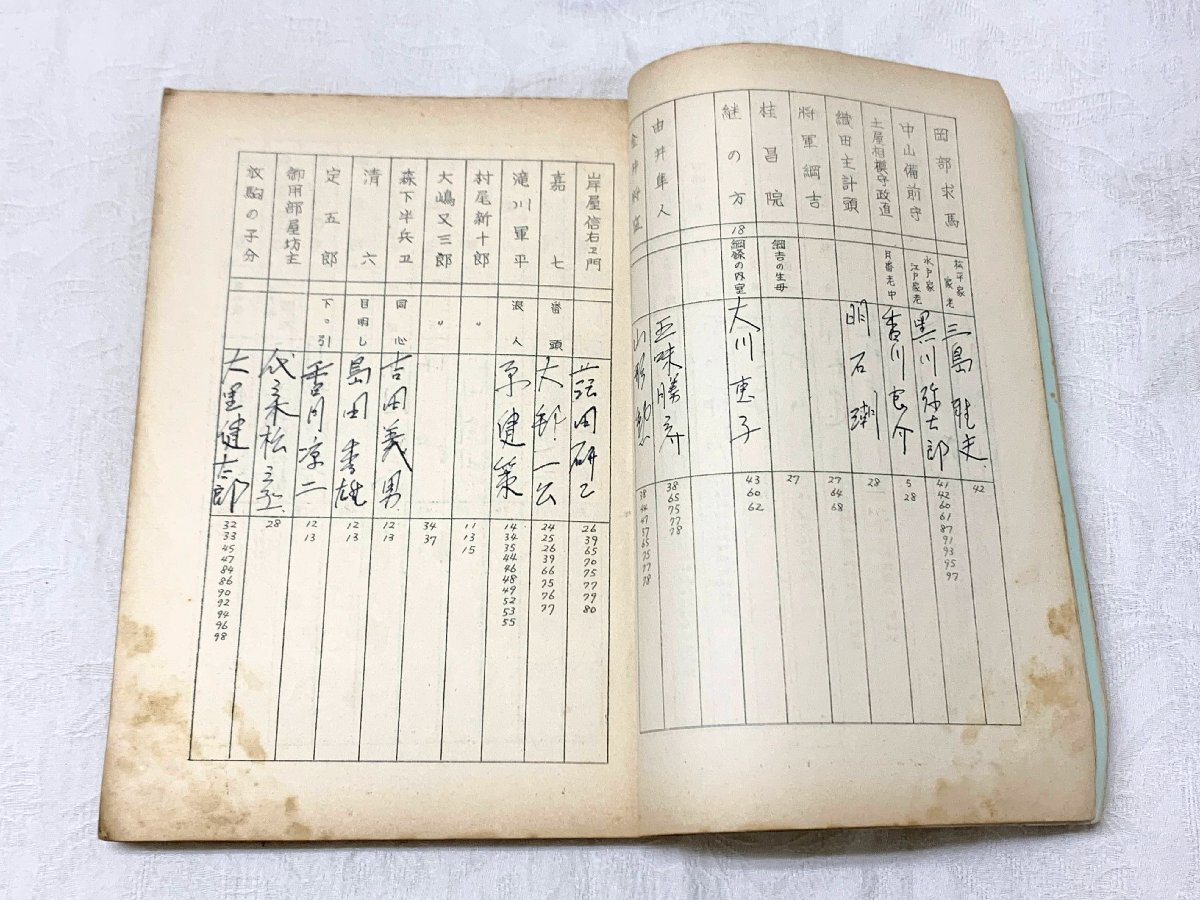 岡部求馬 松平家 家老 三島雅夫 42
中山備前守 水戸家 江戸家老 黒川弥太郎 41 42 60 61 87 91 93 95 97
土屋相模守政直 月番老中 香川良介 5 28
織田主計頭 28
将軍綱吉 明石潮 27 64 68
桂昌院 綱吉の生母 27
継の方 18 綱條の内室 大川恵子 43 60 62
由井隼人 五味勝之介 38 65 75 77 78
38 44 47 57 65 75 77 78
山岸屋信右ヱ門 沼田研二 26 39 65 70 75 77 79 80
嘉七 番頭 大邦一公 24 25 26 39 66 75 76 77
滝川軍平 浪人 原健策 14 34 35 44 46 48 49 52 53 55
村尾新十郎 〃 11 13 15
大嶋又三郎 〃 34 37
森下半兵卫 同心 吉田義男 12 13
清六 目明し 島田秀雄 12 13
定五郎 下っ引 香月凉二 12 13
御用部屋坊主 28
放駒の子分 大里健太郎 32 33 45 47 84 86 90 92 94 96 98